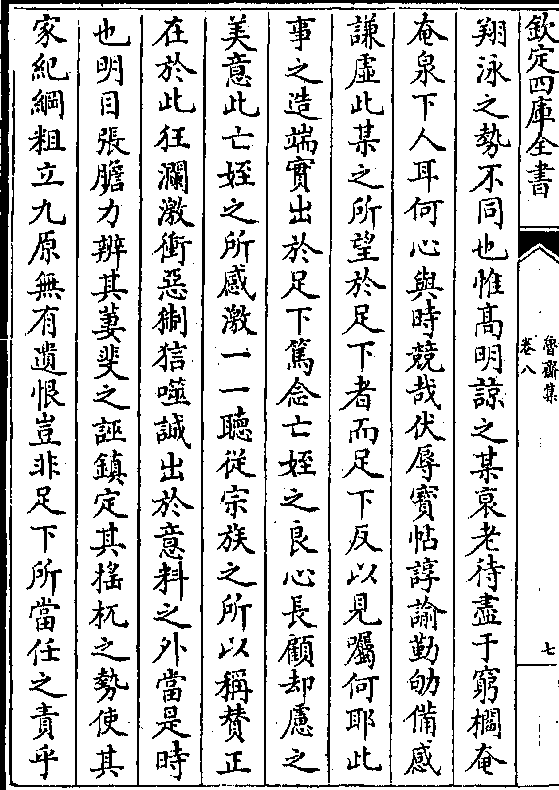 欽定四庫全書
魯齋集
卷八
七
翔泳之勢不同也惟高明諒之某衰老待盡于窮櫩奄
奄泉下人耳何心與時競哉伏辱寶帖諄諭勤劬備感
謙虛此某之所望於足下者而足下反以見屬何耶此
事之造端實出於足下篤念亡姪之良心長顧却慮之
美意此亡姪之所感激一一聽從宗族之所以稱賛正
在於此狂瀾激衝惡猘狺噬誠出於意料之外當是時
也明目張膽力辨其萋斐之誣鎮定其搖杌之勢使其
家紀綱粗立九原無有遺恨豈非足下所當任之責乎